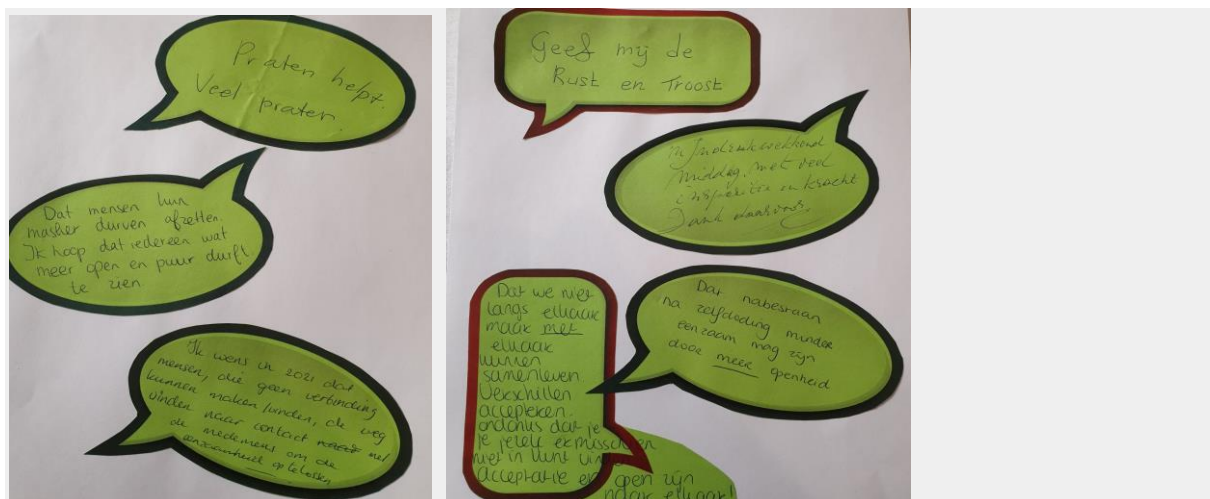 Praten helpt.
Veel praten.
Dat mensen hun
masker durven afzetten.
Ik hoop dat iedereen wat
meer open en puur durft
te zien
Ik wens in 2021 dat
mensen, die geen verbinding
kunnen maken/vinden, de weg
vinden naar contact met
de medemens om de
eenzaamheid op te lossen
Geef mij de
Rust en Troost
Indrukwekkend
middag, met veel
inspiratie en kracht
Dank daarvoor
Dat we niet
langs elkaar
maar met
elkaar
kunnen
samenleven
Verschillen
accepteren.
ondanks dat je
je jezelf er misschien
niet in kunt vinden
acceptatie en open zijn
naar elkaar!
Dat nabestaan
na zelfdoding minder
eenzaam mag zijn
door meer openheid